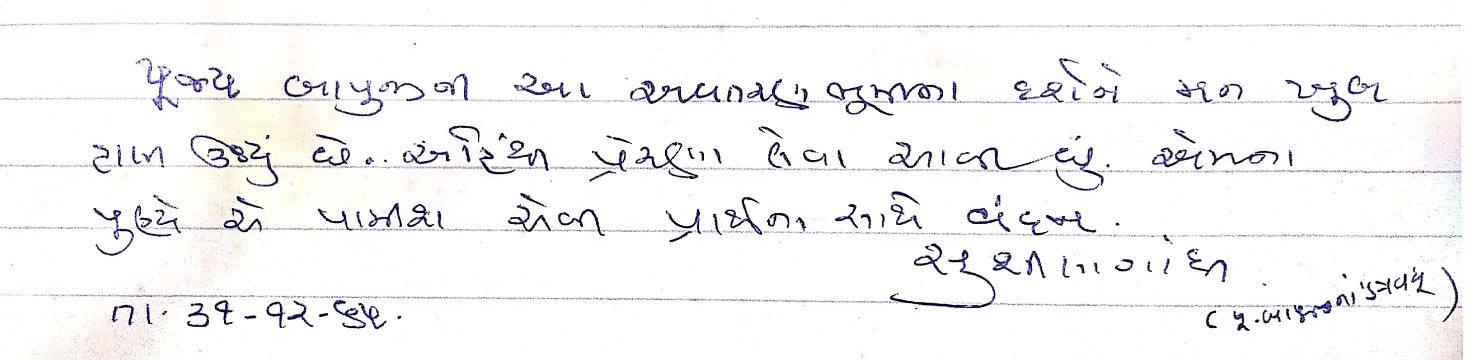 પૂજ્ય બાપુજીની આ અવતરણ ભૂમીના દર્શને મન ખુબ
રાજી થયું છે. અહિંથી પ્રેરણા લેવા આવી છું. એમના
પુણ્યે એ પામીશ એવી પ્રાર્થના સાથે વંદન.
સુશીલા ગાંધી
(પૂ. બાપુજીનાં પુત્રવધૂ)
તા. ૩૧-૧૨-૬૫.